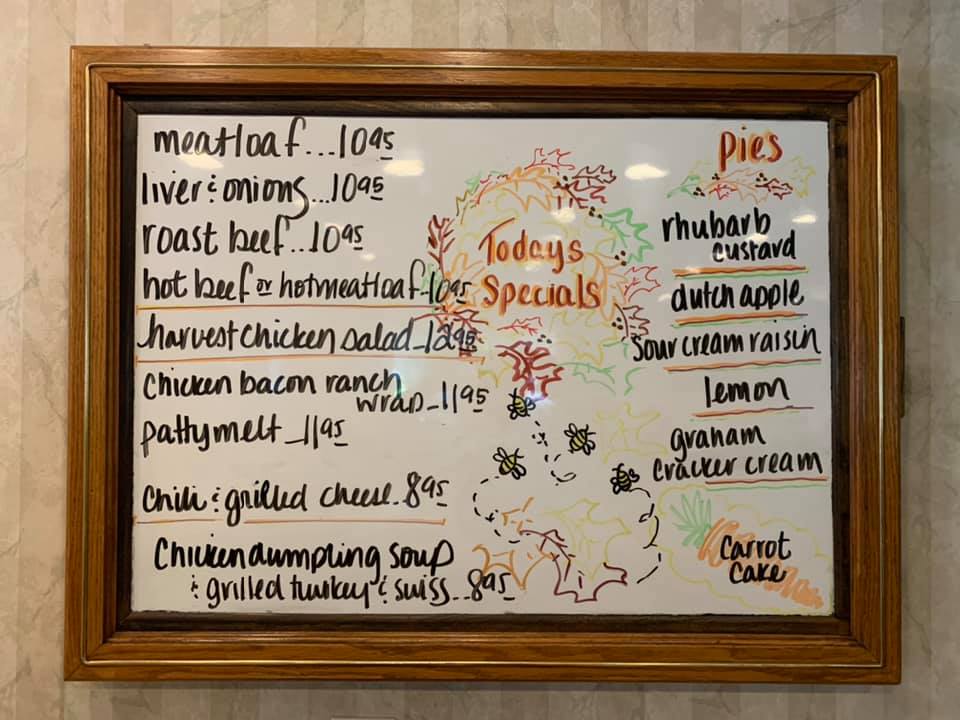 meatloaf...1095
liver & onions...1095
roast beef...1095
hot beef or hot meatloaf-1095
harvest chicken salad-1295
Chicken bacon ranch
wrap-1195
patty melt-1195
Chili & grilled cheese..895
Chicken dumpling soup
& grilled turkey & swiss..895
Todays
Specials
Pies
rhubarb
custard
dutch apple
Sour cream raisin
lemon
graham
cracker cream
Carrot
Cake